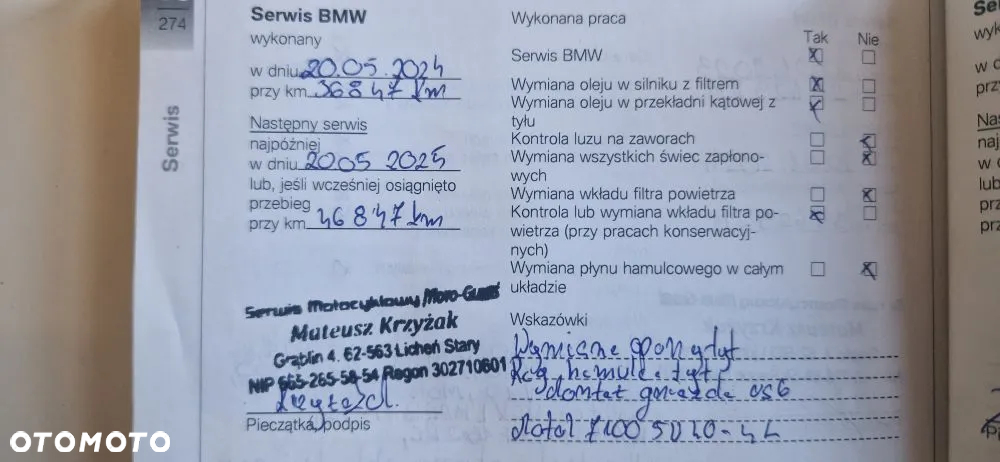 274
Serwis
Serwis BMW
wykonany
w dniu 20.05.2024
przy km 36847 km
Następny serwis
najpóźniej
w dniu 20.05 2025
lub, jeśli wcześniej osiągnięto
przebieg
przy km 46847 km
Serwis Motocyklowy Moto-Guest
Mateusz Krzyżak
Grąblin 4, 62-563 Licheń Stary
NIP 665-265-58-54 Regon 302710601
Pieczątka, podpis
Wykonana praca
Tak Nie
Serwis BMW
Wymiana oleju w silniku z filtrem
Wymiana oleju w przekładni kątowej z
tyłu
Kontrola luzu na zaworach
Wymiana wszystkich świec zapłono-
wych
Wymiana wkładu filtra powietrza
Kontrola lub wymiana wkładu filtra po-
wietrza (przy pracach konserwacyj-
nych)
Wymiana płynu hamulcowego w całym
układzie
Wskazówki
Wymiana opony tył
hamulc tył
montaż gniazda USB
Motul 7100 5W40 - 4L
OTOMOTO
Se
wyk
w d
prz
Na
naj
w d
lub
prz
prz